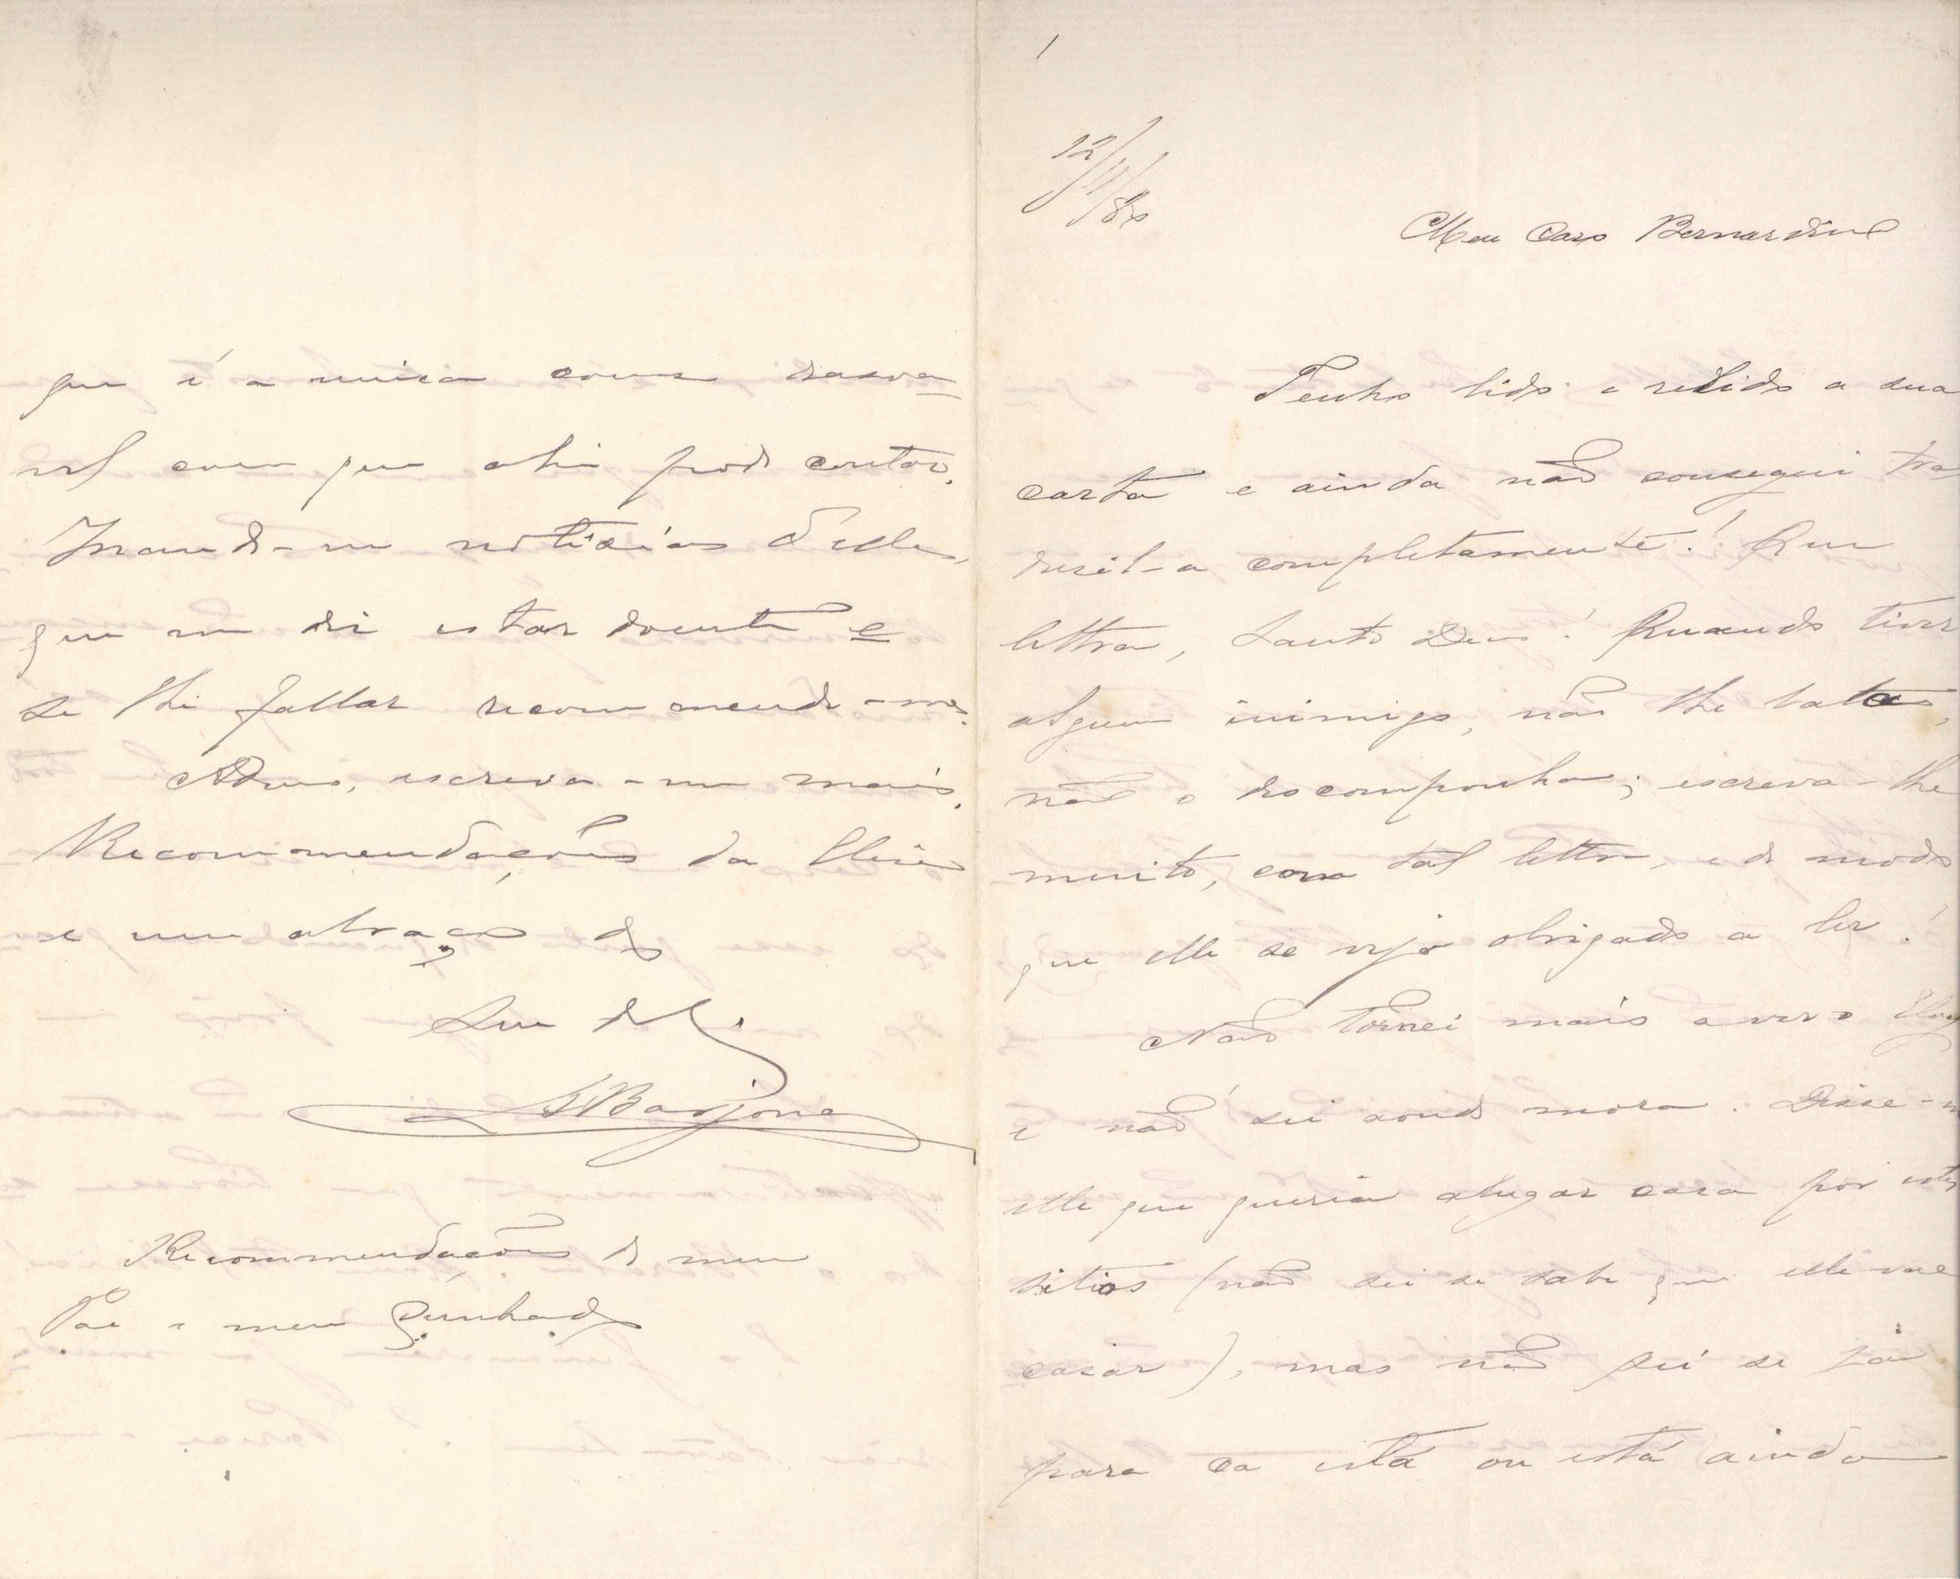 1
12/11/80
Meu Caro Bernardino
Tenho lido e relido a sua
carta e ainda não consegui tra
dusil-a completamente! Que
lettra, Santo Deus! Quando tiver
algum inimigo, não lhe bata,
não o descomponha; escreva-lhe
muito, com tal lettra, e de modo
que elle se veja obrigado a ler!
Não tornei mais a ver o
e não sei aonde mora. Disse-m
elle que queria alugar casa por estes
sitios (não sei se sabe que elle vae
casar), mas não sei se já
para cá está ou está ainda
que é a unica cousa rasoa
vel com que ahi pode contar.
Mande-me noticias d'elle,
que me diz estar doente e
se lhe fallar recommende-me.
Adeus, escreva-me mais.
Recommendações da
e um abraço de
Seu del
Barjona
Recommendações de meu
Pae e meu Cunhado